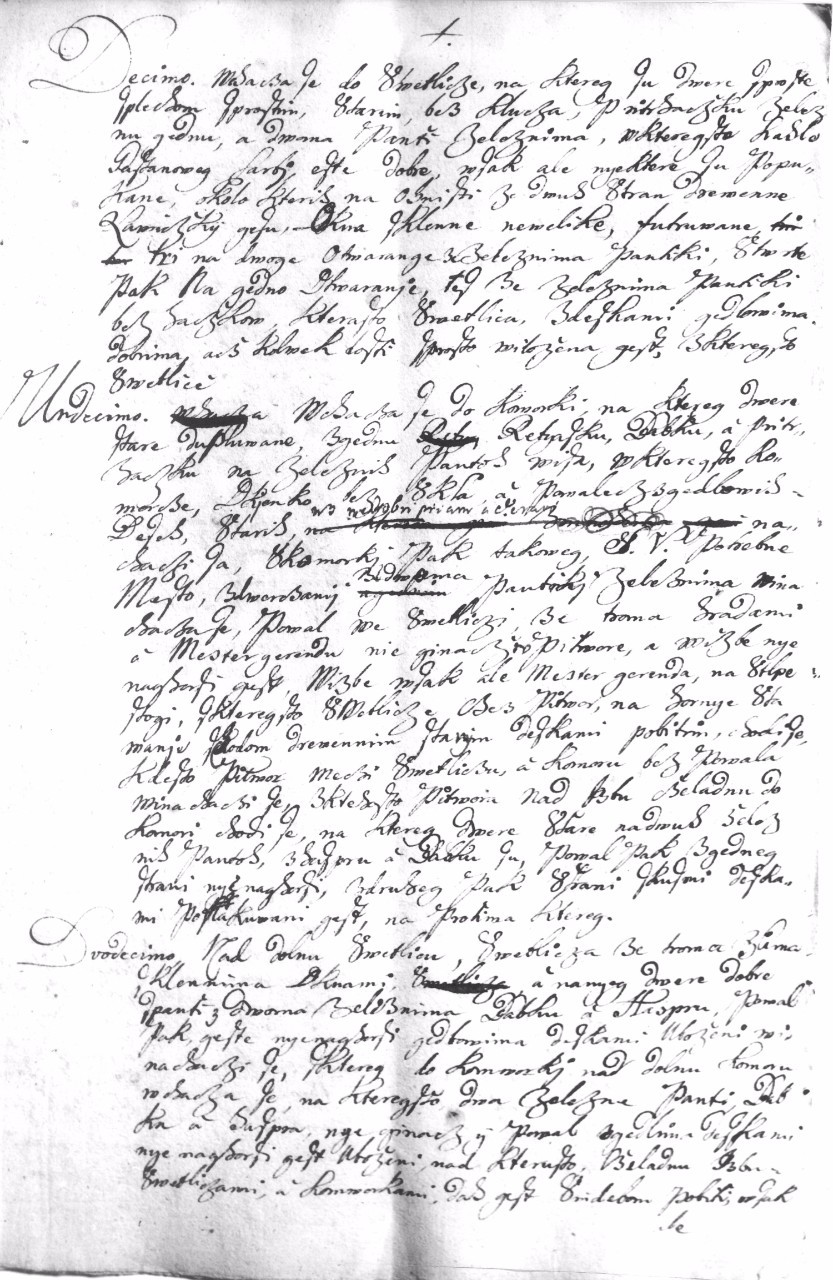 Decimo. Wchacza se do Swetlicze, na ktereg su dwere sproste
splechom sprostim, Starim, bez klucza, Pritrzaczku Zelez
nu gednu, a dwoma Panti Zeleznima, wkteregsto kachle
Gastanoweg farby, este dobre, wsak ale nyektere su Popu-
kane, okolo kterich na Osmisti ze dwuch Stran drewenne
Lawiczky gesu, Okna sklenne newelike, futruwane,
tri na dwoge Otwarange z Zeleznima Pantiki, Stwrte
Pak Na gedno Otwaranje, tez ze Zeleznima Pantiki
bez Haczkow, kterasto Swetlica, Zdeskami gedlowima
dobrima, acz kolwek dosti sprosto wilozena gest, zkteregsto
Swetlice
Undecimo. Wchacza se do komorki, na ktereg dwere
stare dupluwane, zgednu Retyasku, Dabku, a Pritr-
zaczku na Zeleznich Pantoch wisa, wkteregsto ko-
morcze, Okjenko bez Skla, a Powalecz zgedlowich
Desek, Starich, na-
chaczi sa, Skomorki Pak takoweg, S. V. Potrebne
Mesto, zdwerczami Pantiky Zeleznima wina
chacza se, Powal we Swetliczi, ze troma hradami
a Mestergerendu nic ginacz to Pitwore, a wizbe nye
nayhorsi gest, Wizbe wsak ale Mestergerenda, na Stlpe
stogi, skteregsto Swetlicze Cez Pitwor, na hornye Sta
wanje schodom drewennim starim deskami pobitim, chodi se,
kdesto Pitwor medzi Swetliczu, a komoru bez Powala
winachaczi se, zktehosto Pitwora nad Izbu Czeladnu do
komori chodi se, na ktereg dwere Stare nadwuch Zelez
nich Pantoch, zhaspru a Dabku su, Powal Pak zgedneg
strani nye nayhorsi, zdruheg Pak Strani skusmi deska-
mi Poplatkuwani gest, na Protima ktereg.
Dvodecimo, Nad dolnu Swetlicu, Swetlicza ze troma
sklennima Oknami, a nanyeg dwere dobre
spanti z dwoma Zeleznima Dabku a Haspru, Powal
Pak, geste nyenayhorsi gedlowima deskami Ulozeni wi-
nachaczi se, sktereg do komworki nad dolnu komoru
wchacza se, na kteregsto dwa Zelezne Panti, Dab
ka a haspra, nye ginacz y Powal zgedlima deskami
nye nayhorsi gest Ulozeni, nad kterusto, Czeladnu Izbu
Swetliczami, a komworkami, dach gest Sindelom pobiti, wsak
le